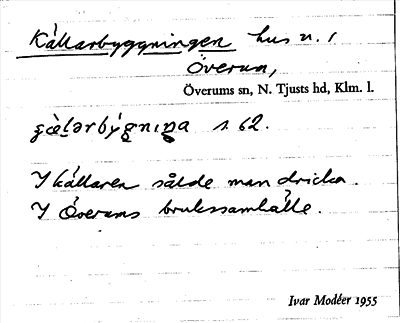 Källarbyggningen hus n. i
Överum,
Överums sn, N. Tjusts hd, Klm. l.
s. 62.
I källaren sålde man dricka.
I Överums brukssamhälle.
Ivar Modéer 1955